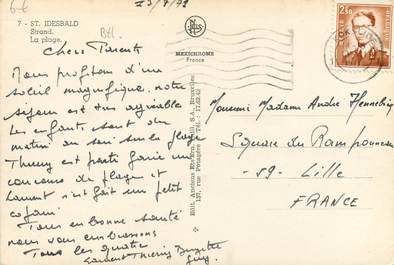 6€
Bel.
23/7/72
7 - ST. IDESBALD
Strand.
La plage.
Chers Parents
Nous profitons d'un
soleil magnifique, notre
séjour est très agréable
Les enfants sont du
matin au soir sur la plage
Thierry est parti faire un
concours de plage et
Laurent s'est fait un petit
copain.
Tous en bonne santé
nous vous embrassons
Tous les quatre
Laurent Thierry Brigitte
Guy.
MEXICHROME
France
Edit. Anciens Etabliss. S.A., Bruxelles
137, rue Potagère Tél. : 17.62.62
2,50
Monsieur Madame André Hennebing
Square du Ramponneau
-59- Lille
FRANCE